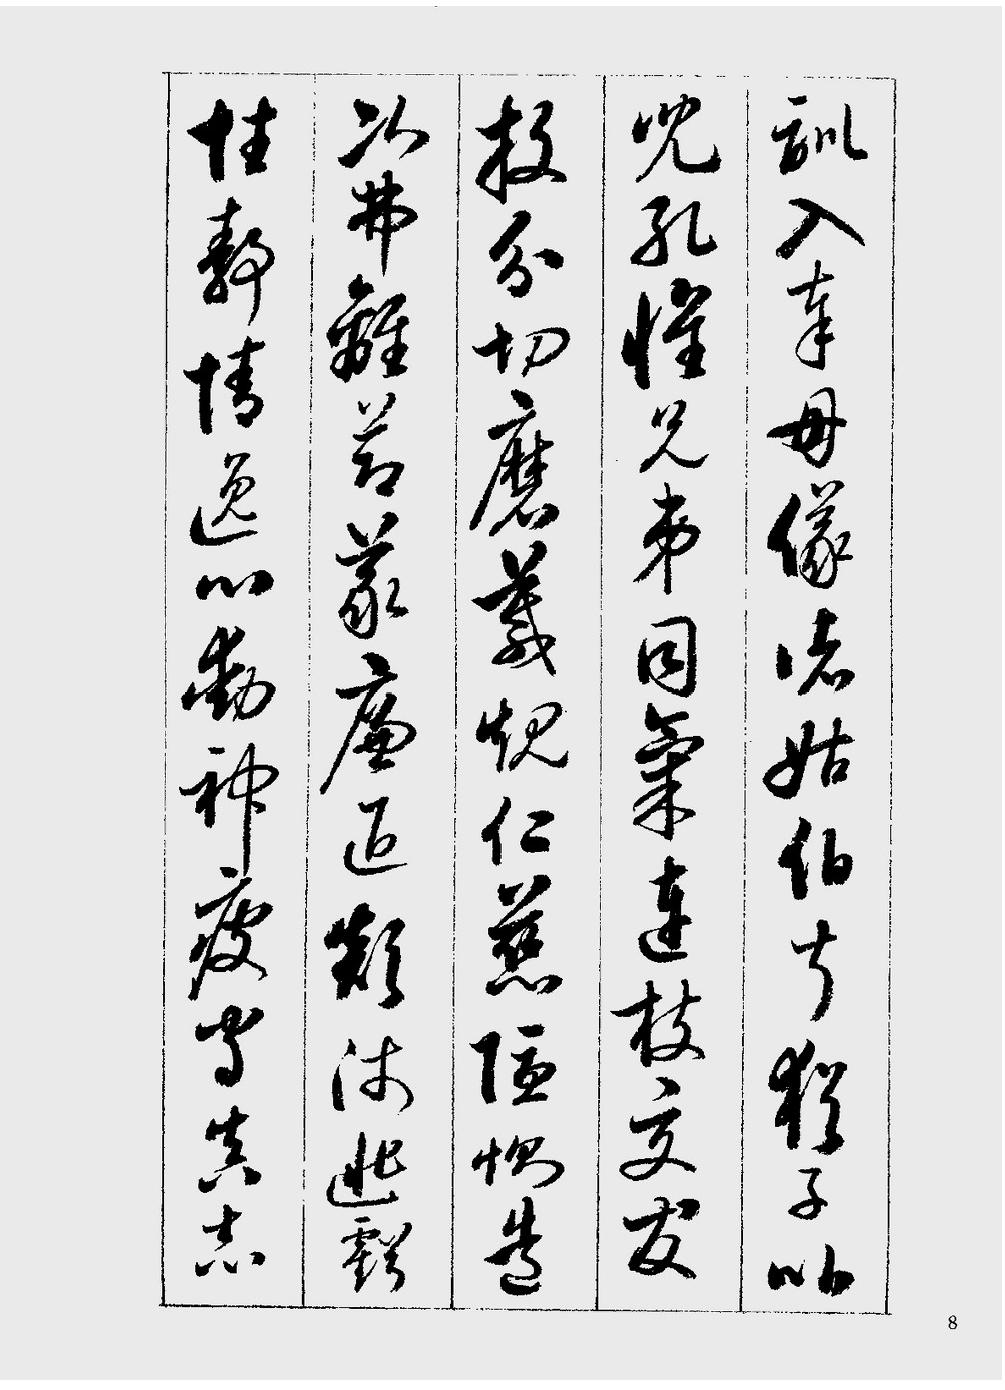 訓入奉母儀諸姑伯叔猶子比
兒孔懷兄弟同氣連枝交友
投分切磨箴規仁慈隱惻造
次弗離節義廉退顛沛匪虧
性靜情逸心動神疲守真志
8